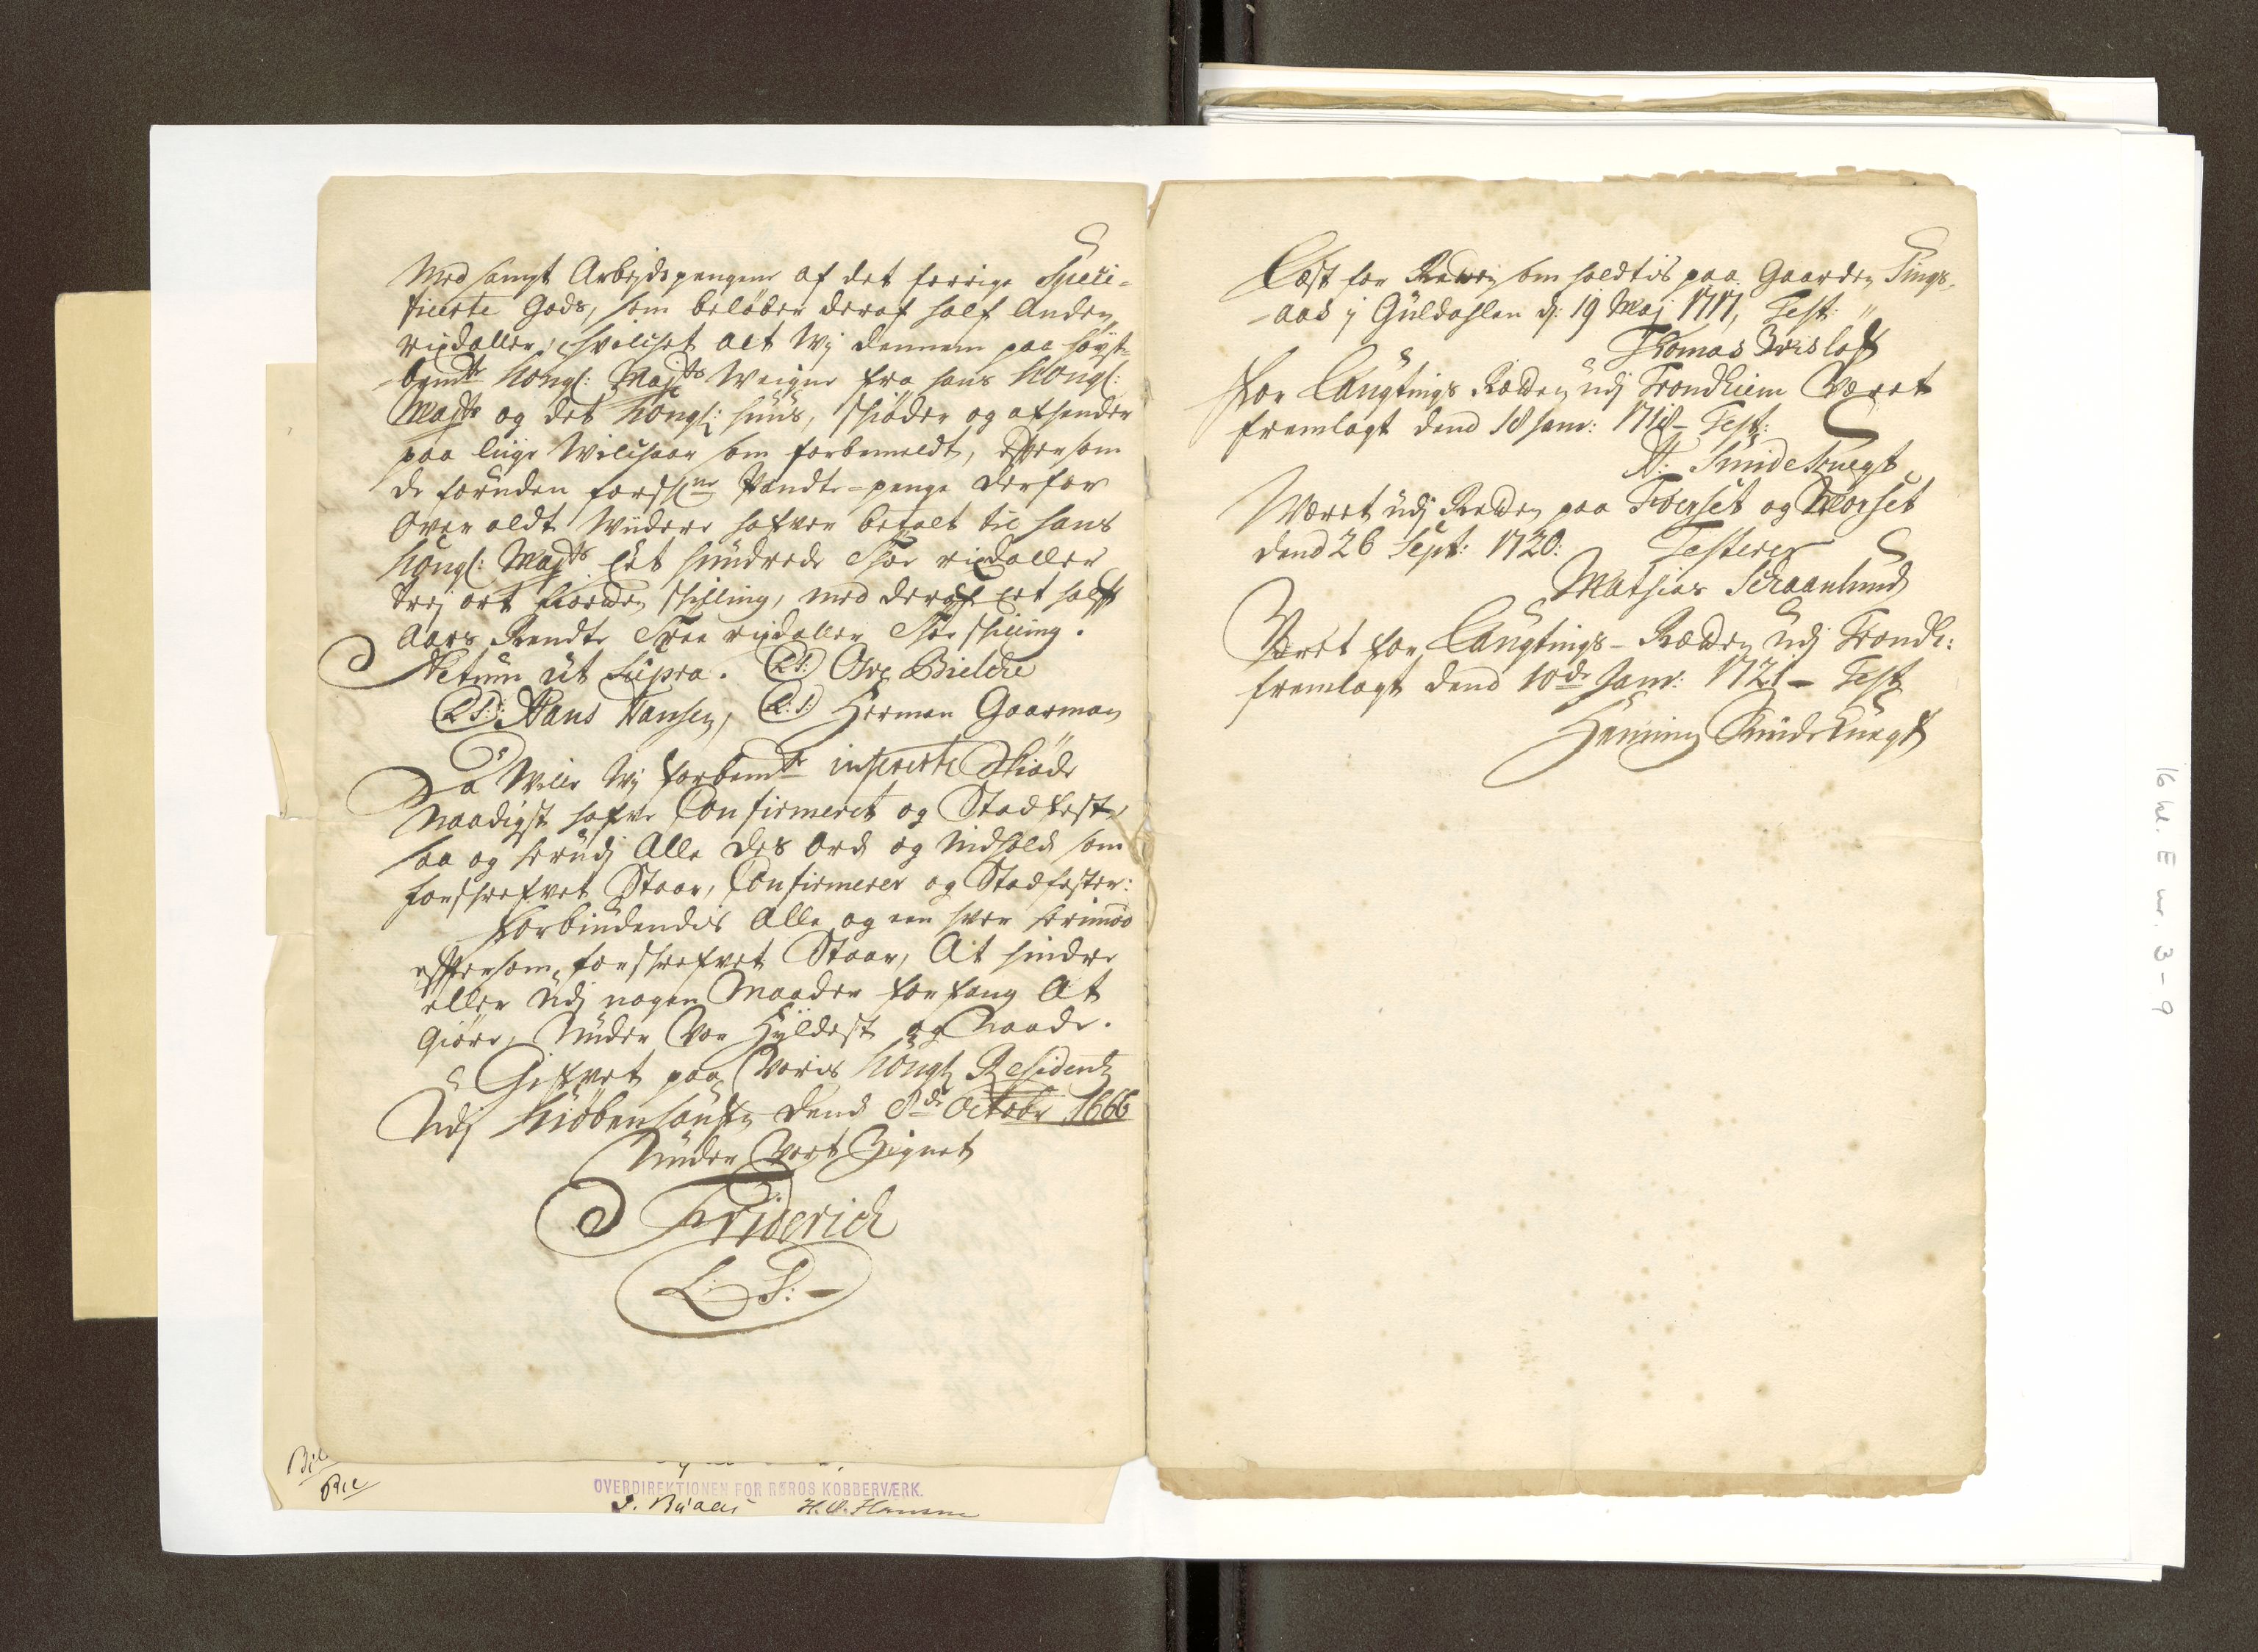 Med sampt Arbejdspengene af det forrige Speci-
ficerte Gods, som beløber deraf half Anden
rixdaller, hvilchet alt Wij dennem paa høyst-
bemte Kongl: Majts Weigne fra hans Kongl:
Majts og det Kongl: huus, skiøder og afhender
paa liige Wilchaar som forbemeldt, eftersom
de foruden forschne Pandte-penge derfor
Over aldt Wiidere hafver betalt til hans
Kongl: Majts Eet hundrede Thoe rixdaller
Trej ort skilling, med deraf Eet halft
Aars Rendte Trea rixdaller Thoe skilling.
Actum út Supra. L.S: Ove Bielche
L.S: Hans Hansen, L:S: Herman Gaarman
Da Wille Wij forbemte insererte Skiøde
Naadigst hafve Confirmerit og Stadfest
saa og herudj Alle des Ord og Indhold som
forschrefvet Staar, Confirmerer og Stadfester:
Forbiudendis Alle og een hver herimod
eftersom forschrefvet Staar, At hindre
eller Udj nogen Maader forfang At
Giøre, Under Vor Hyldest og Naade.
Gifvet paa Voris Kongl Residentz
Udj Kiøbenhaufn dend 8de Octobr 1666
Under Vort Zignet
Friderich
L: S: -
OVERDIREKTIONEN FOR RØROS KOBBERVÆRK.
H. O. Hansen
Læst for Retten som holdtis paa Gaarden Sings-
-aas j Guldahlen d: 19 Maj 1717, Test:
Thomas
For Laugtings Retten udj Trondhiem Været
fremlagt dend 18 Janv: 1718 - Test:
Været udj Retten paa Tverset og Morset
dend 26 Sept: 1720: Testerer
Mathias
Været for Laugtings-Retten udj Trondh:
fremlagt dend 10de Janv: 1721 - Test
Henning
16 kl. E nr. 3-9